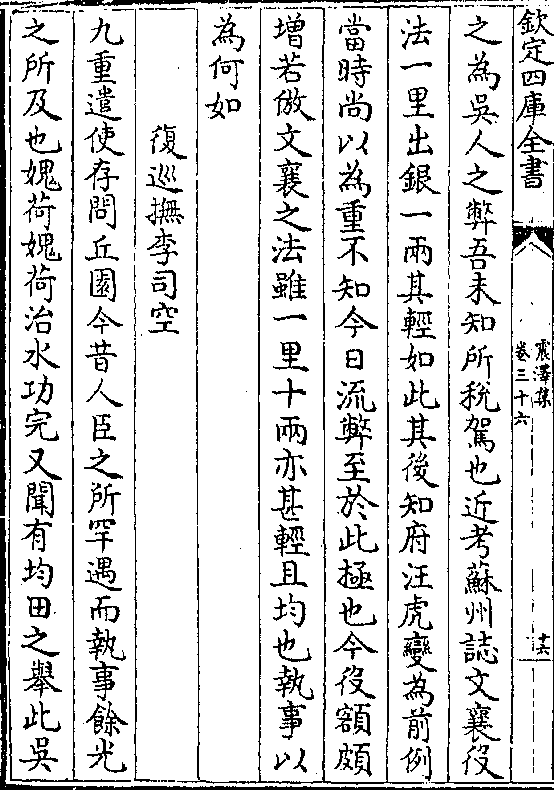 欽定四庫全書
震澤集
卷三十六
十六
之為吳人之弊吾未知所稅駕也近考蘇州誌文襄役
法一里出銀一兩其輕如此其後知府汪虎變為前例
當時尚以為重不知今日流弊至於此極也今役額頗
增若倣文襄之法雖一里十兩亦甚輕且均也執事以
為何如
復巡撫李司空
九重遣使存問丘園今昔人臣之所罕遇而執事餘光
之所及也媿荷媿荷治水功完又聞有均田之舉此吳